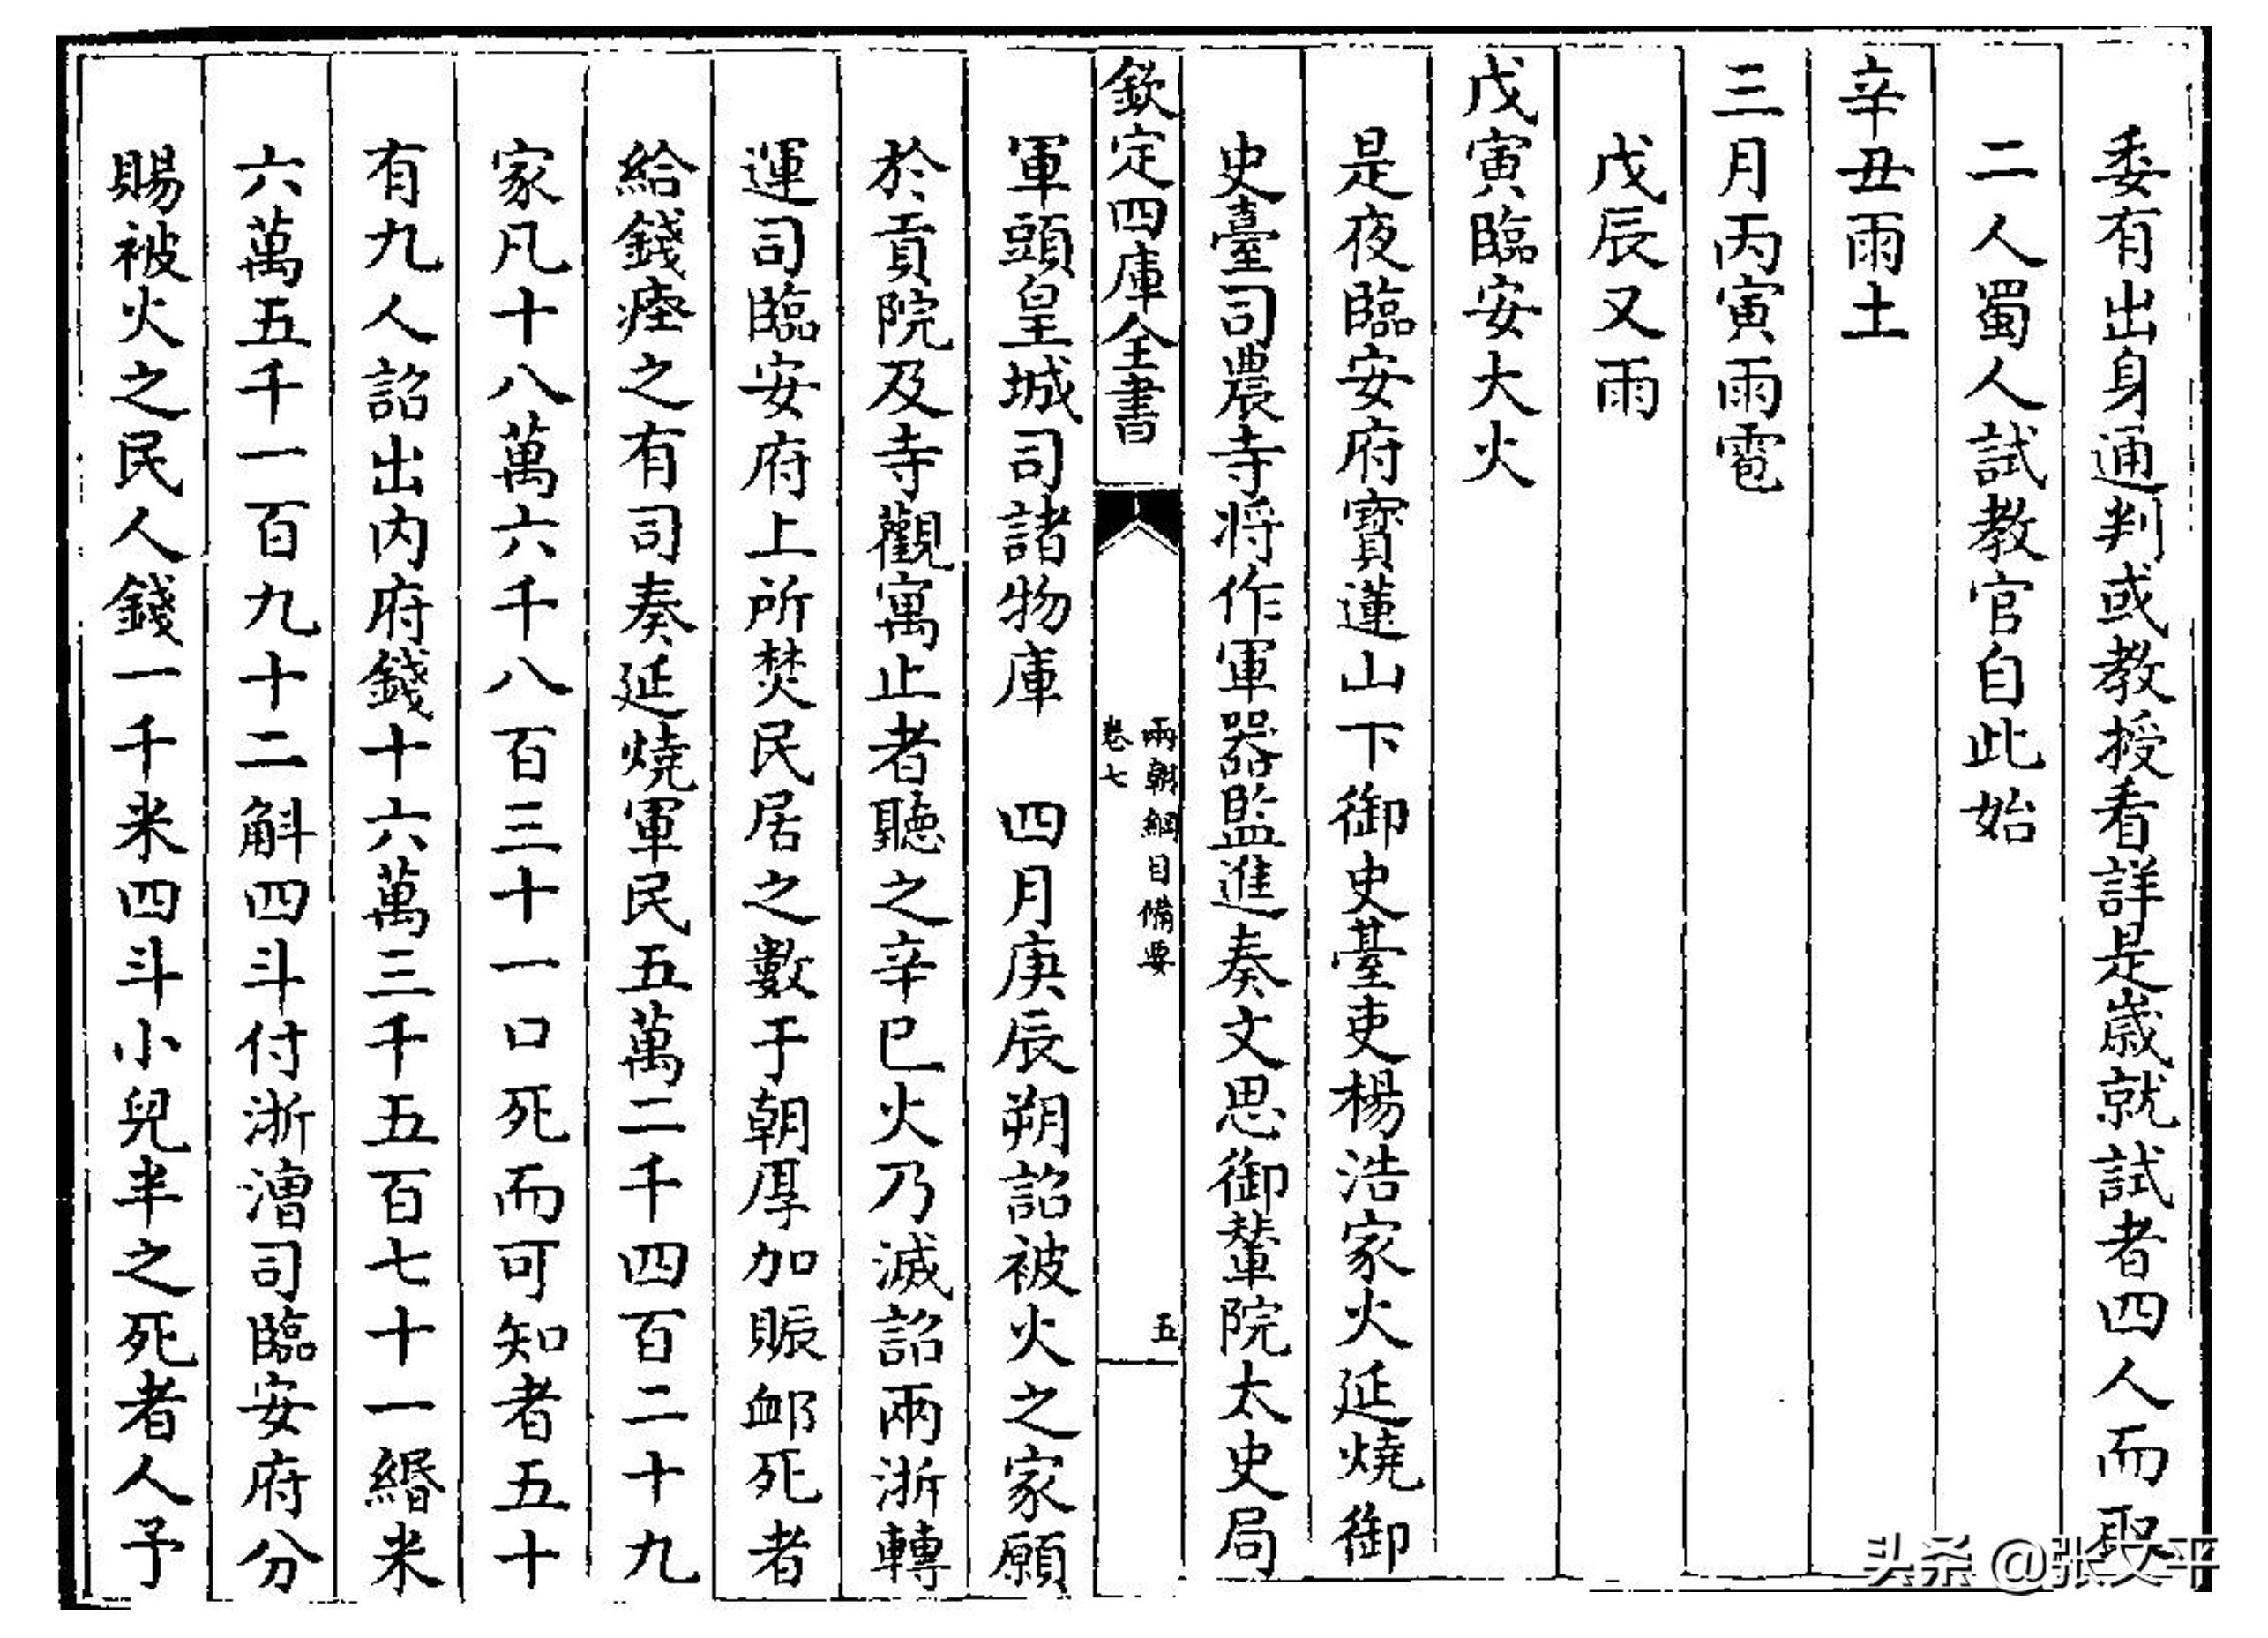 委有出身通判或教授看詳是歲就試者四人而取
二人蜀人試教官自此始
辛丑雨土
三月丙寅雨雹
戊辰又雨
戊寅臨安大火
是夜臨安府寶蓮山下御史臺吏楊浩家火延燒御
史臺司農寺將作軍器監進奏文思御輦院太史局
欽定四庫全書
兩朝綱目備要
卷七
五
軍頭皇城司諸物庫 四月庚辰朔詔被火之家願
於貢院及寺觀寓止者聽之辛巳火乃滅詔兩浙轉
運司臨安府上所焚民居之數于朝厚加賑卹死者
給錢瘞之有司奏延燒軍民五萬二千四百二十九
家凡十八萬六千八百三十一口死而可知者五十
有九人詔出内府錢十六萬三千五百七十一緡米
六萬五千一百九十二斛四斗付浙漕司臨安府分
賜被火之民人錢一千米四斗小兒半之死者人予
头条 @张文平